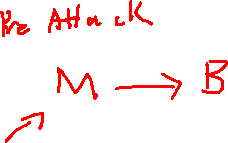 Pre Attack
M → B